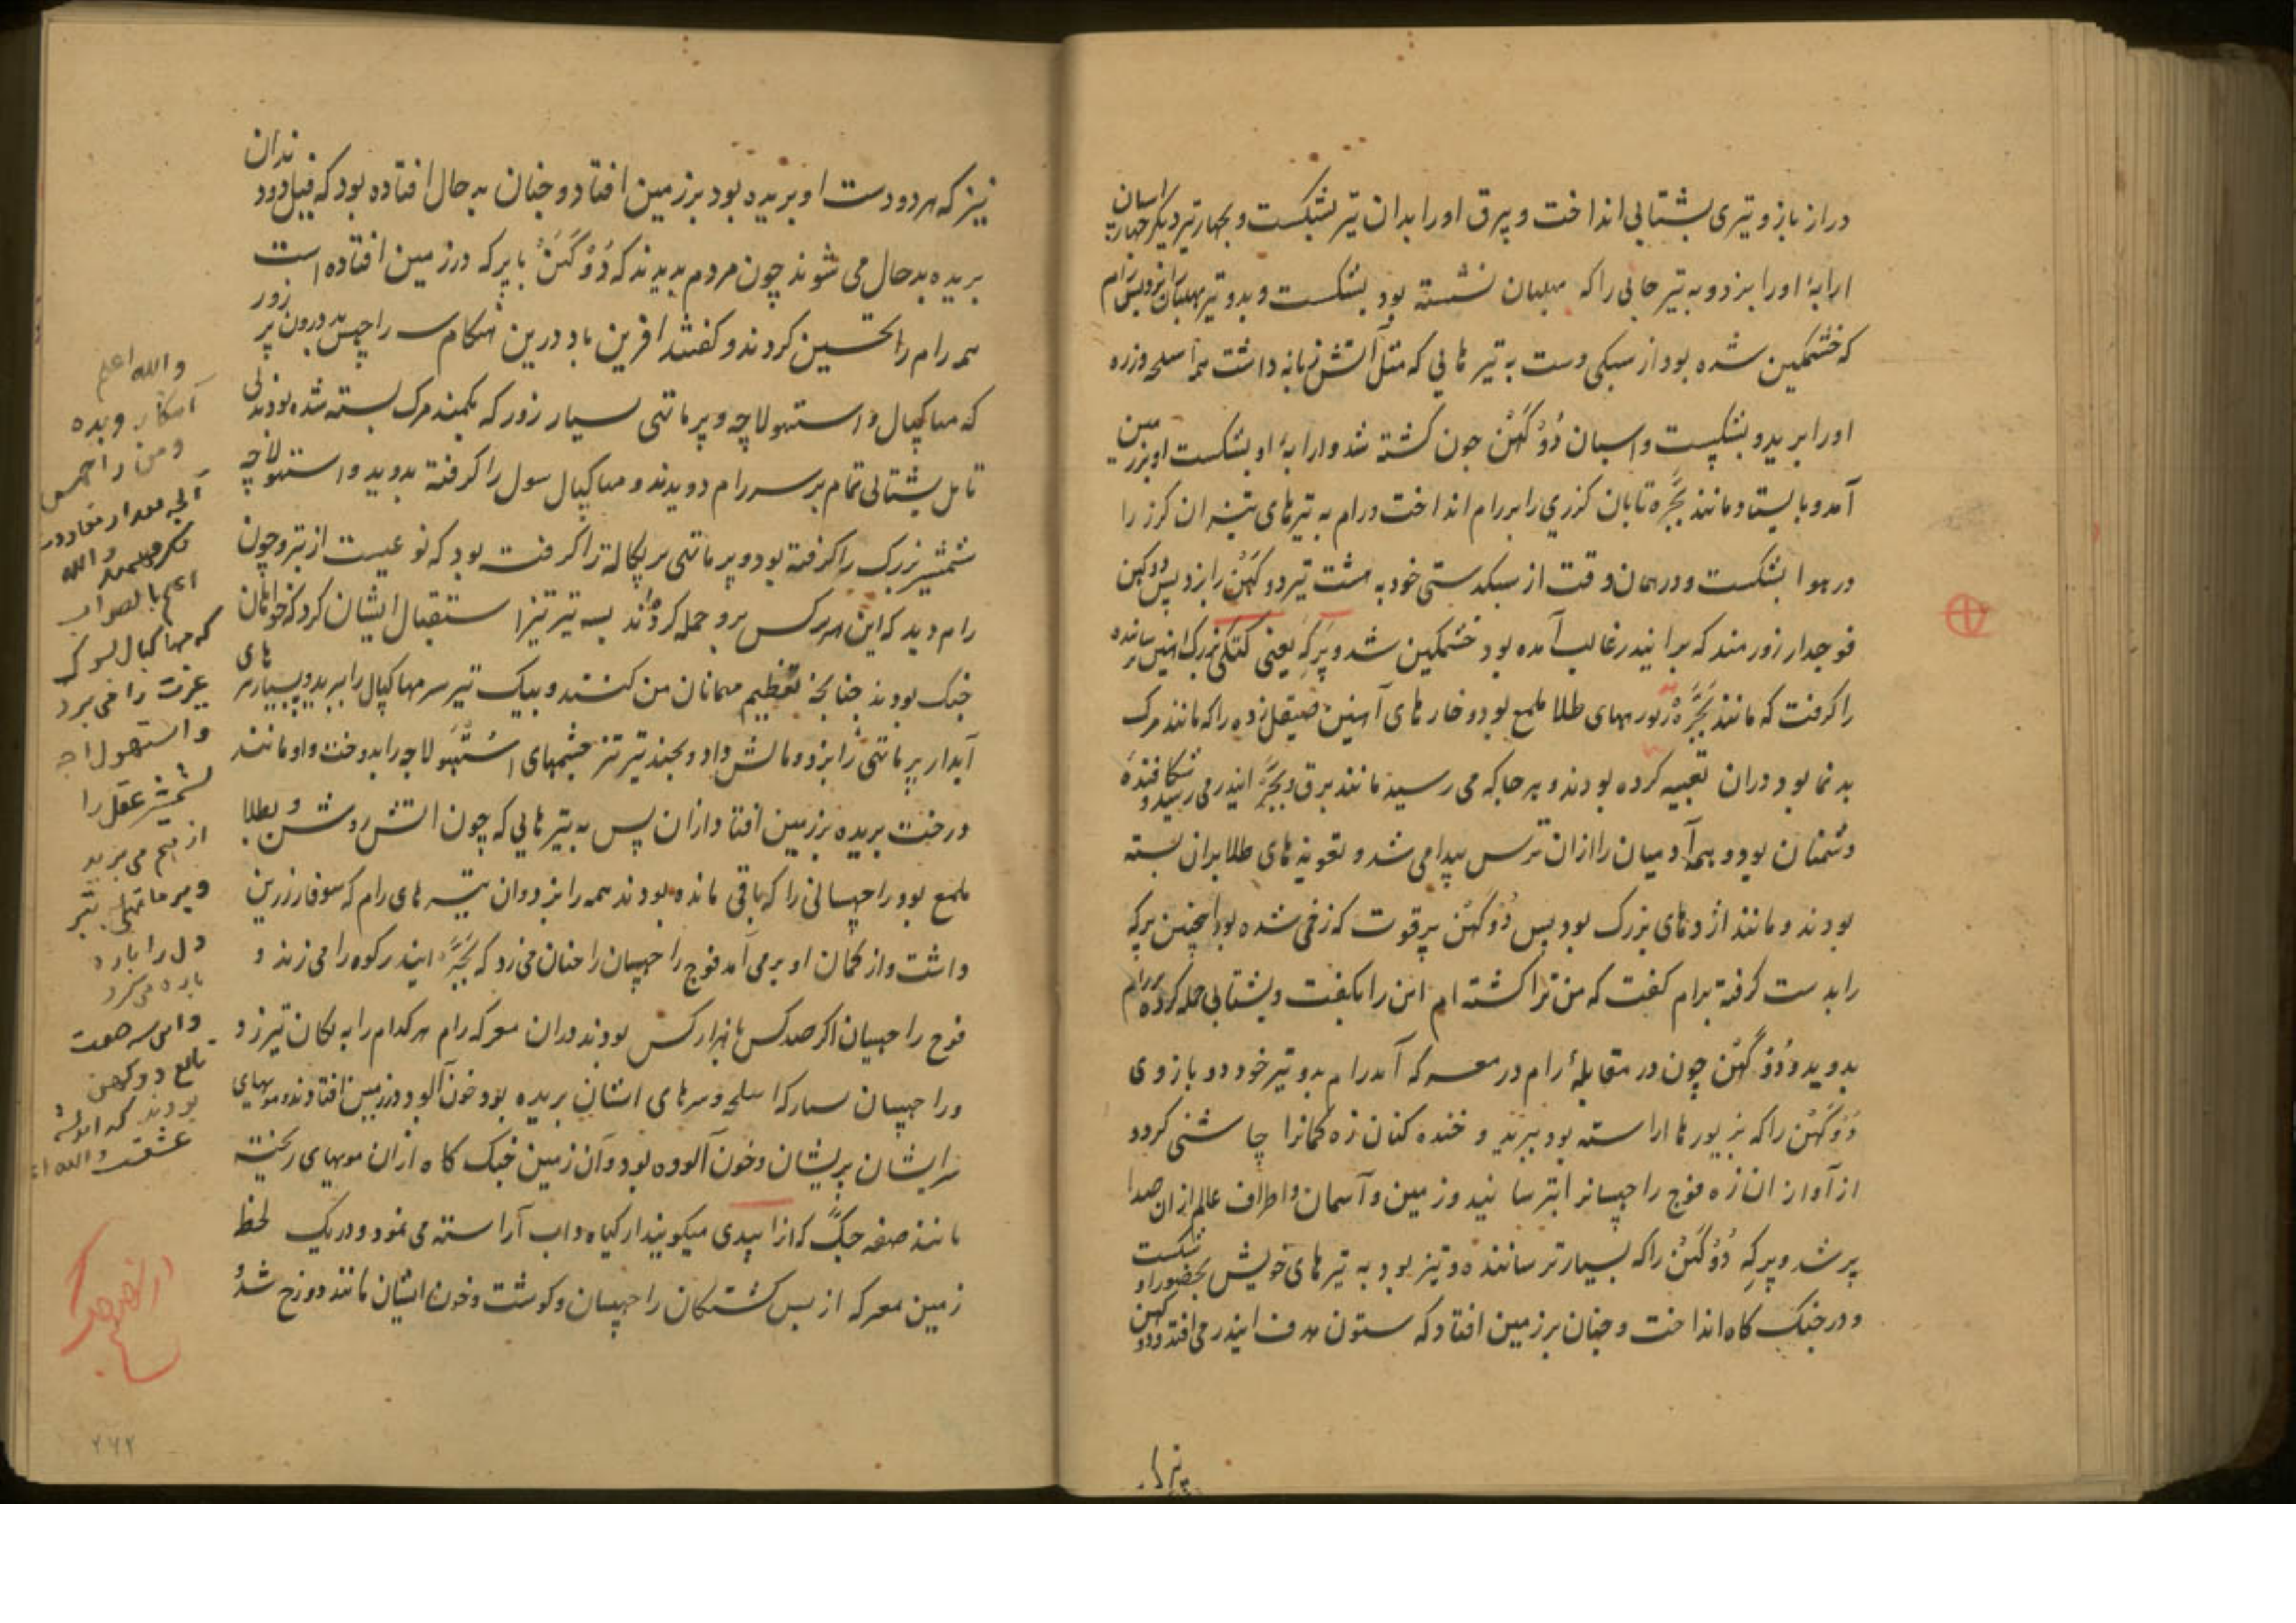 دراز بازو تیری بشتابی انداخت و بیرق او را بدان تیر بشکست و بچهار تیر دیگر چهار اسپان
ارابهٔ او را بزد و به تیر جائی را که مهلبان نشسته بود بشکست و بدو تیر مهلبان را بزد پس رام
که خشمگین شده بود از سبکی دست به تیرهایی که مثل آتش زبانه داشت همه اسلحه و زره
او را برید و بشکست و اسپان دُوْکَهَنْ چون کشته شد و ارابهٔ او بشکست او بر زمین
آمد و بایستاد و مانند بَجَّره تابان گرزی را بر رام انداخت و رام به تیرهای تیز آن گرز را
در هوا بشکست و در همان وقت از سبکدستی خود به هشت تیر دوکَهَنْ را بزد پس دوکهن
فوجدار زورمند که بر اندر غالب آمده بود خشمگین شد و پَرِکِهِ یعنی کتکی بزرگ آهنین
را گرفت که مانند بَجَّرَه زیورهای طلا ملمع بود و خارهای آهنین صیقل زده را که مانند مرگ
بدنما بود در آن تعبیه کرده بودند و هر جا که می رسید مانند برق و بَجَّرِ اندر می رسید و شکافندهٔ
دشمنان بود و همه آدمیان را ازان ترس پیدا می شد و تعویذهای طلا بران بسته
بودند و مانند اژدهای بزرگ بود پس دُوْکَهَنْ پرقوت که زخمی شده بود اینچنین پرکه
را بدست گرفته برام گفت که من ترا کشته ام این را بگفت و بشتابی حمله کرده بر رام
بدوید و دُوْکَهَنْ چون در مقابلهٔ رام در معرکه آمد رام بدو تیر خود دو بازوی
دُوْکَهَنْ را که بزیورها آراسته بود ببرید و خنده کنان زه کمانرا چاشنی کرد و
از آواز آن زه فوج راچهسانرا بترسانید و زمین و آسمان و اطراف عالم ازان صدا
پر شد و پرکِهِ دُوْکَهَنْ را که بسیار ترساننده و تیز بود به تیرهای خویش بحضور او بشکست
و در جنگ گاه انداخت و چنان بر زمین افتاد که ستون هدف اندر می افتد و دوکهن
نیز که هر دو دست او بریده بود بر زمین افتاد و چنان به حال افتاده بود که فیل دو دندان
بریده بدحال می شوند چون مردم بدیدند که دُوْکَهَنْ با پرکه در زمین افتاده است
همه رام را تحسین کردند و گفتند افرین باد درین هنگام سه راچهس پر زور
که مهاکپال و استهولاچه و پرماتهی بسیار زور که بکمند مرگ بسته شده بودند
بشتابی تمام بر سر رام دویدند و مهاکپال سول را گرفته بدوید و استهولاچه
شمشیر بزرگ را گرفته بود و پرماتهی پرکاله را گرفته بود که نوعیست از تبر و چون
رام دید که این هر سه کس برو حمله کرده اند به تیر تیز استقبال ایشان کرد که خواهان
جنگ بودند چنانچه تعظیم مهمانان من کنند و بیک تیر سر مهاکپال را ببرید و به بسیار تیرهای
آبدار پرماتهی را بزد و مالش داد و بچند تیر تیز چشمهای اسُتَهولاچه را بدوخت و او مانند
درخت بریده بر زمین افتاد و ازان پس به تیرهایی که چون آتش روشن و بطلا
ملمع بود راچهسانی را که باقی مانده بودند همه را بزد و آن تیرهای رام که سوفار زرین
داشت و از کمان او بر می آمد فوج راچهسان را چنان می زد که بَجَّرِ اندر کوه را می زند و
فوج راچهسان اگر صد کس یا هزار کس بودند در آن معرکه رام هر کدام را به یکان تیر زد
و راچهسان بسیار که اسلحه و سرهای ایشان بریده بود خون آلود در زمین افتادند و مویهای
سر ایشان پریشان و خون آلوده بود و آن زمین جنگ گاه ازان مویهای ریخته
مانند صفه جگ که آنرا بیدی میگویند از کیاه داب آراسته می نمود و در یک لحظه
زمین معرکه از بس کشتگان راچهسان و گوشت و خون ایشان مانند دوزخ شد و
والله اعلم
و من راچهس
والله
اعلم بالصواب
که مهاکپال
عزت را می برد
و استهولاچه
شمشیر عقل را
از هم می برید
و پرماتهی تبر
دل را پاره
پاره می کرد
و این سه صفت
تابع دوکهن
بودند
عشقست والله اعلم
۲۶۲